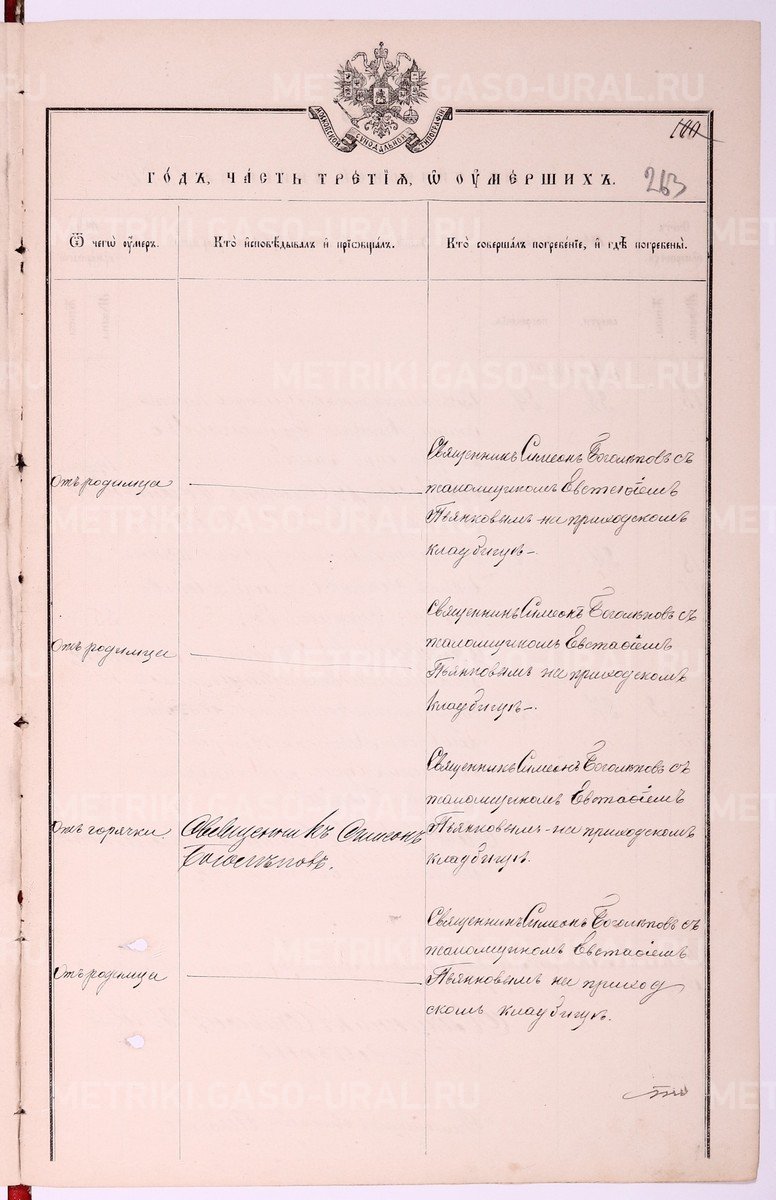 METRIKI.GASO-URAL.RU
МОСКОВСКОЙ СѴНОДАЛЬНОЙ ТИПОГРАФІИ
100
263
ГО́ДЪ, ЧА́СТЬ ТРЕ́ТІѦ, Ѽ ОУ҆МЕ́РШИХЪ.
Ѿ чегѡ̀ оу҆́меръ.
Кто̀ и҆сповѣ́дывалъ и҆ прїѡбща́лъ.
Кто̀ соверша́лъ погребе́нїе, и҆ гдѣ̀ погребены̀.
Отъ родимца
Священникъ Симеонъ Боголѣповъ съ
псаломщикомъ Евстафіемъ
Пьянковымъ на приходскомъ
кладбищѣ.
Отъ родимца
Священникъ Симеонъ Боголѣповъ съ
псаломщикомъ Евстафіемъ
Пьянковымъ на приходскомъ
кладбищѣ.
Отъ горячки.
Священникъ Симеонъ
Боголѣповъ.
Священникъ Симеонъ Боголѣповъ съ
псаломщикомъ Евстафіемъ
Пьянковымъ на приходскомъ
кладбищѣ.
Отъ родимца
Священникъ Симеонъ Боголѣповъ съ
псаломщикомъ Евстафіемъ
Пьянковымъ на приход
скомъ кладбищѣ.